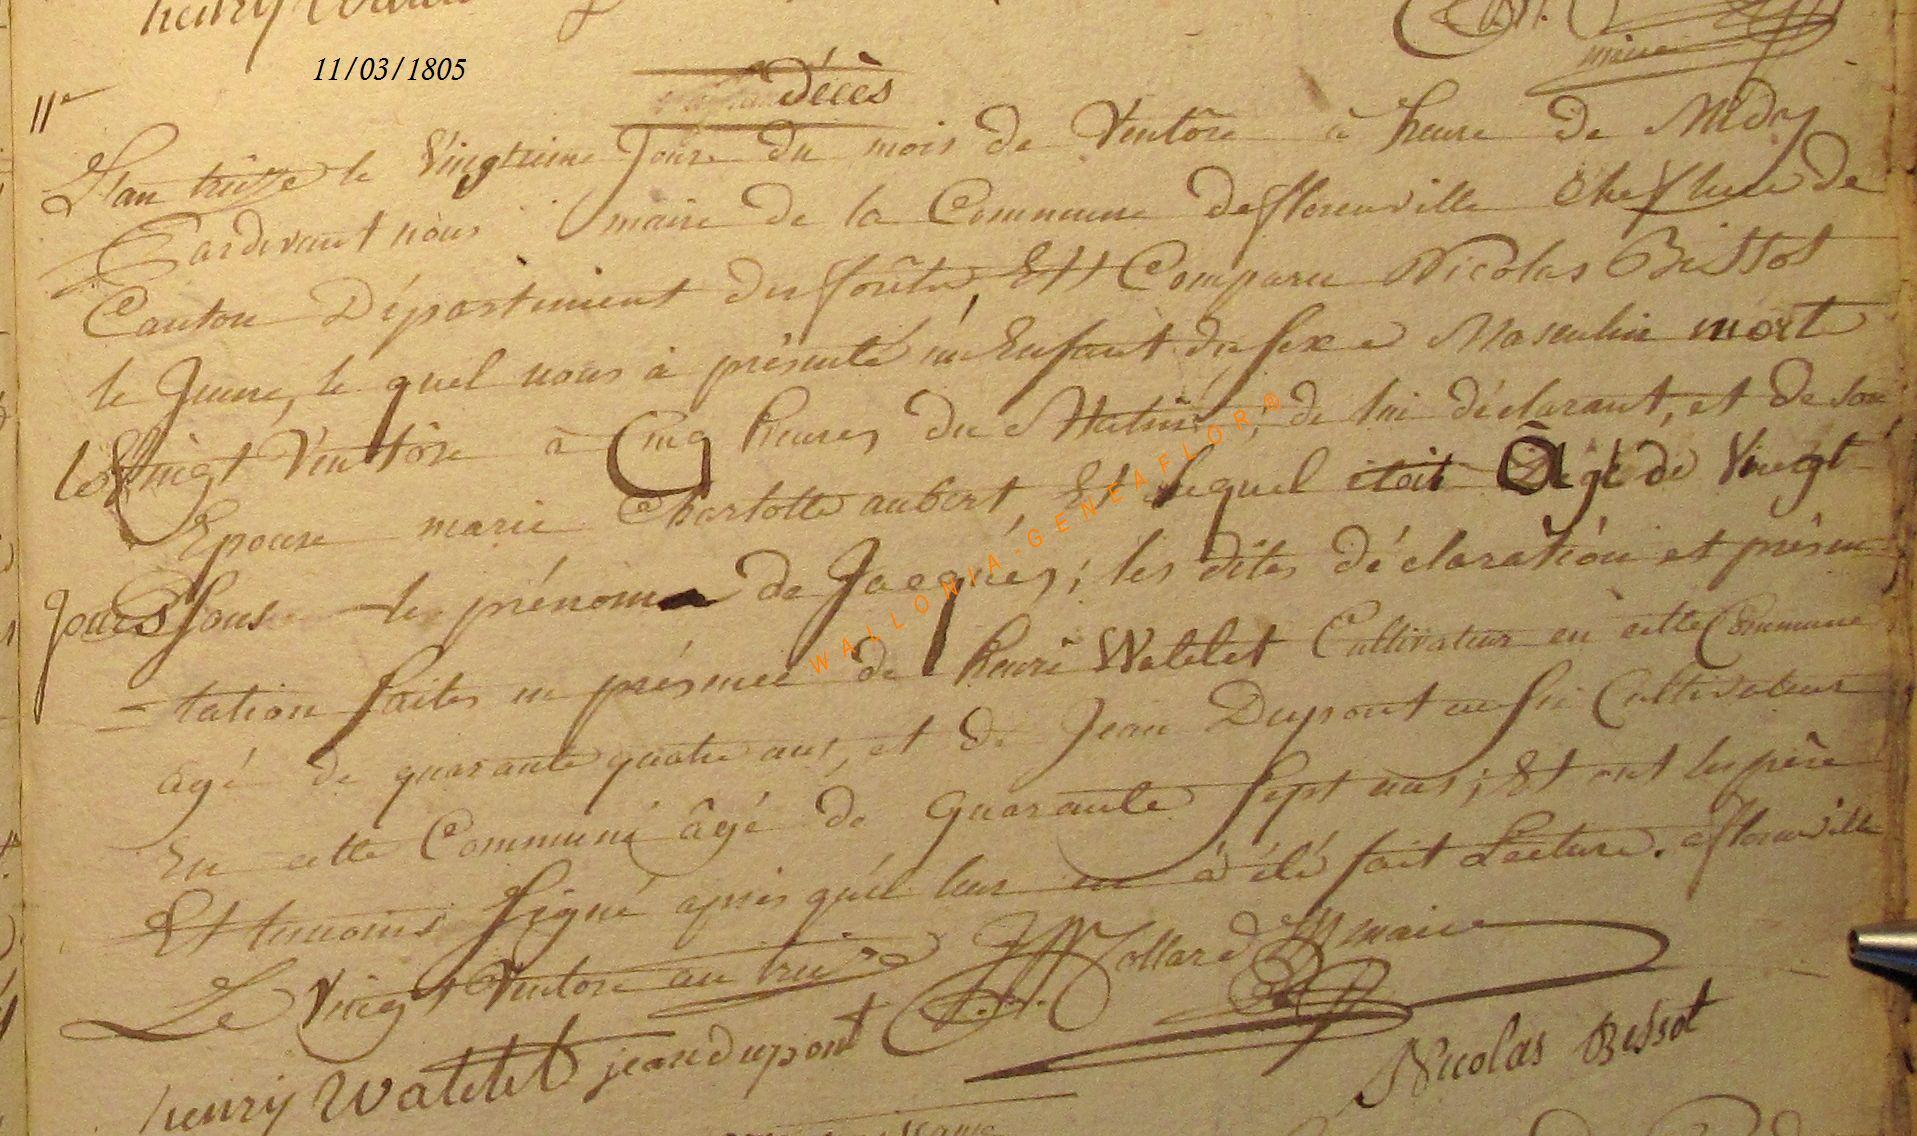 henry
mire
11/03/1805
11e
décès
L'an treize le Vingtieme Jour du mois de Ventôse à heure de Midy
Pardevant nous maire de la Commune de florenville Chef lieu de
Canton Département des forêts, Est Comparu Nicolas Bissot
le Jeune, le quel nous à présenté un Enfant du sexe Masculin mort
le Vingt Ventôse à Cinq heures du Matin, de lui déclarant, et de son
Epouse marie Charlotte aubert, Et lequel étoit Agé de Vingt
Jours Sous le prénom de Jacques; les dites déclaration et présen
=tation faites en présence de henri Watelet Cultivateur en cette Commune
âgé de quarante quatre ans, et de Jean Dupont aussi Cultivateur
En cette Commune âgé de quarante Sept ans; Et ont les père
Et temoins Signé après qu'il leur en à été fait Lecture. a florenville
Le Vingt Ventose an treize Collard maire
henry Watelet jean dupont
Nicolas Bissot
WALLONIA-GENEAFLOR®